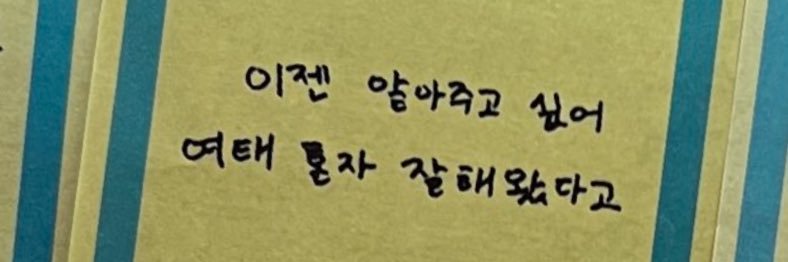 이젠 알아주고 싶어
여태 혼자 잘해왔다고